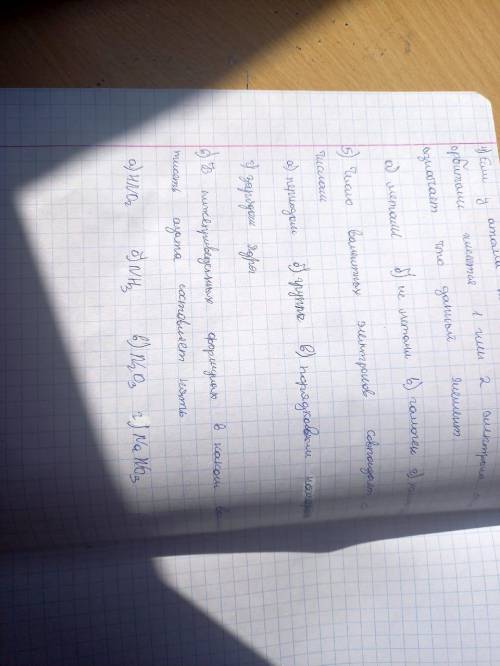 4) Если у атома
орбитами имеется 1 или 2 электрона
означает что данный элемент
а) металл б) не металл в) галоген г)
5) Число валентных электронов совпадает с
числом
а) периодом б) группа в) порядковым
г) зарядом ядра
6) В нижеприведенных формулах в каком
тность азота составляет пять
а) HNO₂ б) NH₃ в) N₂O₃ г) NaNO₃